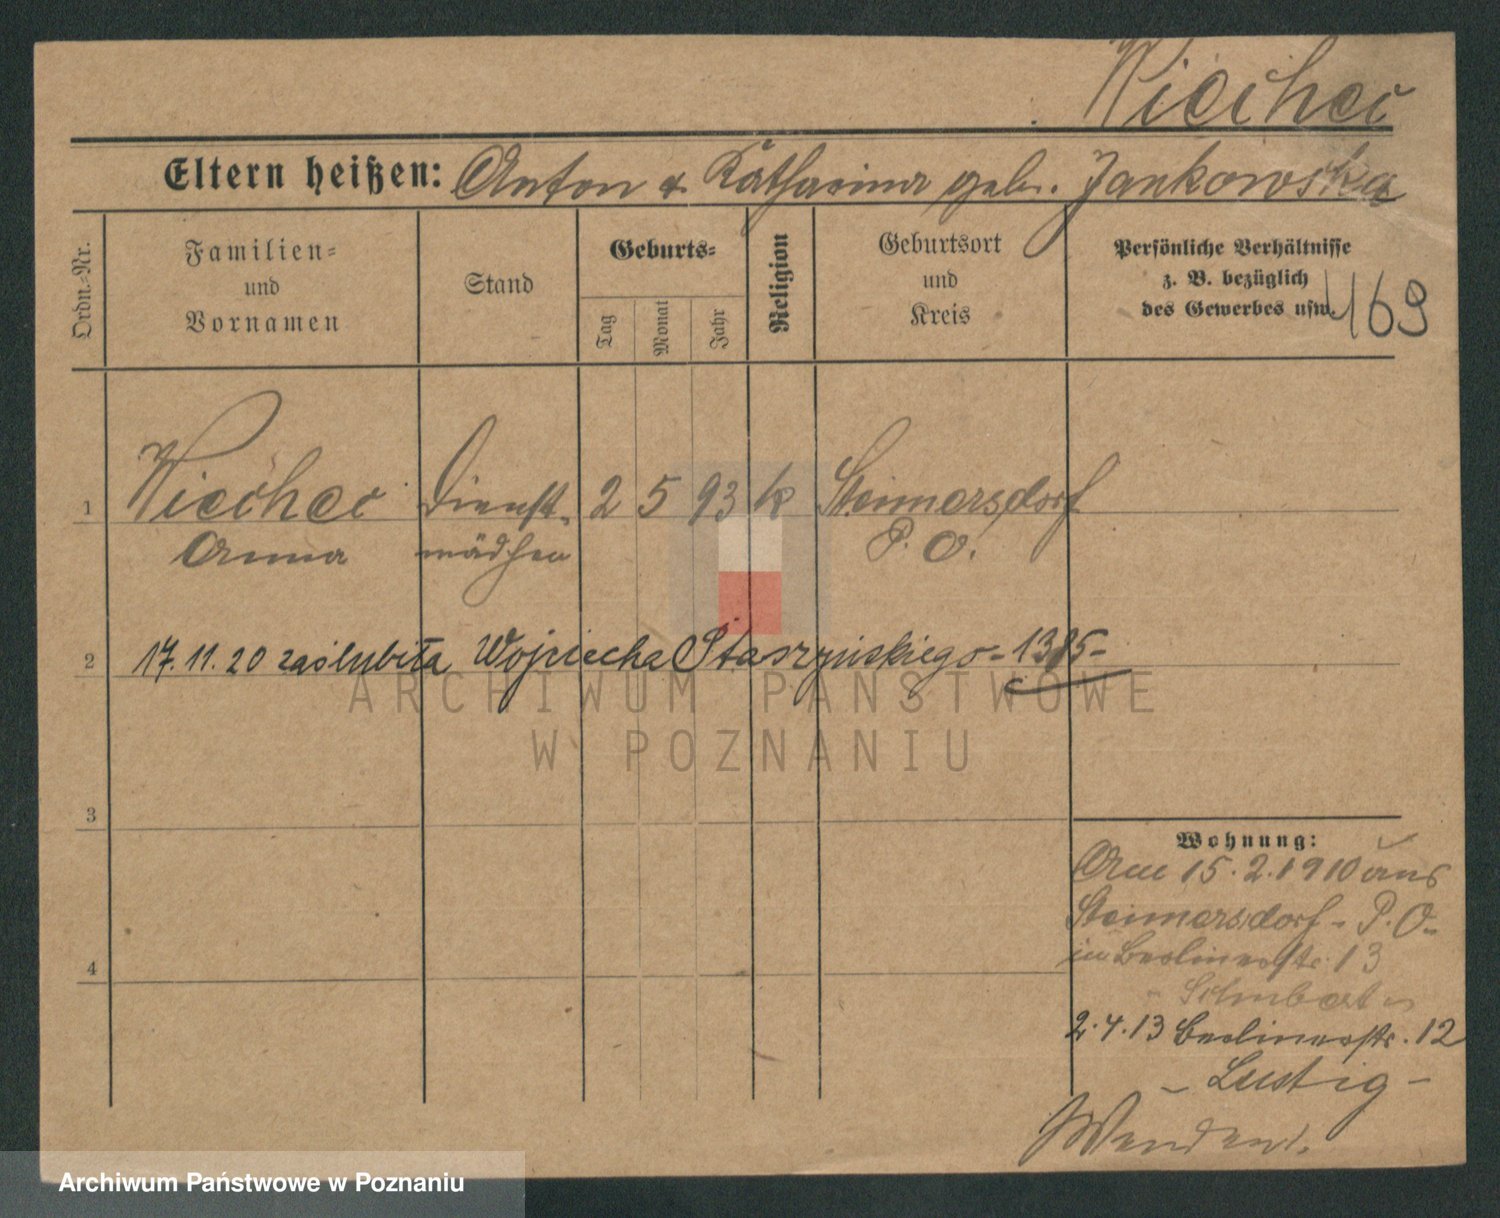 Wiecheć
Eltern heißen: Anton & Katharina geb. Jankowska
Ordn.-Nr.
Familien=
und
Vornamen
Stand
Geburts=
Tag
Monat
Jahr
Religion
Geburtsort
und
Kreis
Persönliche Verhältnisse
z. B. bezüglich
des Gewerbes usw.
169
1 Wiecheć Dienst- 2 5 93 k Steimersdorf
Anna mädchen P. O.
2 17.11.20 zaślubiła Wojciecha Staszyńskiego - 1395 -
ARCHIWUM PAŃSTWOWE
W POZNANIU
3
4
Wohnung:
Am 15.2.1910 aus
Steimersdorf - P. O -
in Berlinerstr. 13
- Schubert -
2.4.13 Berlinerstr. 12
- Lustig -
Wenden!
Archiwum Państwowe w Poznaniu